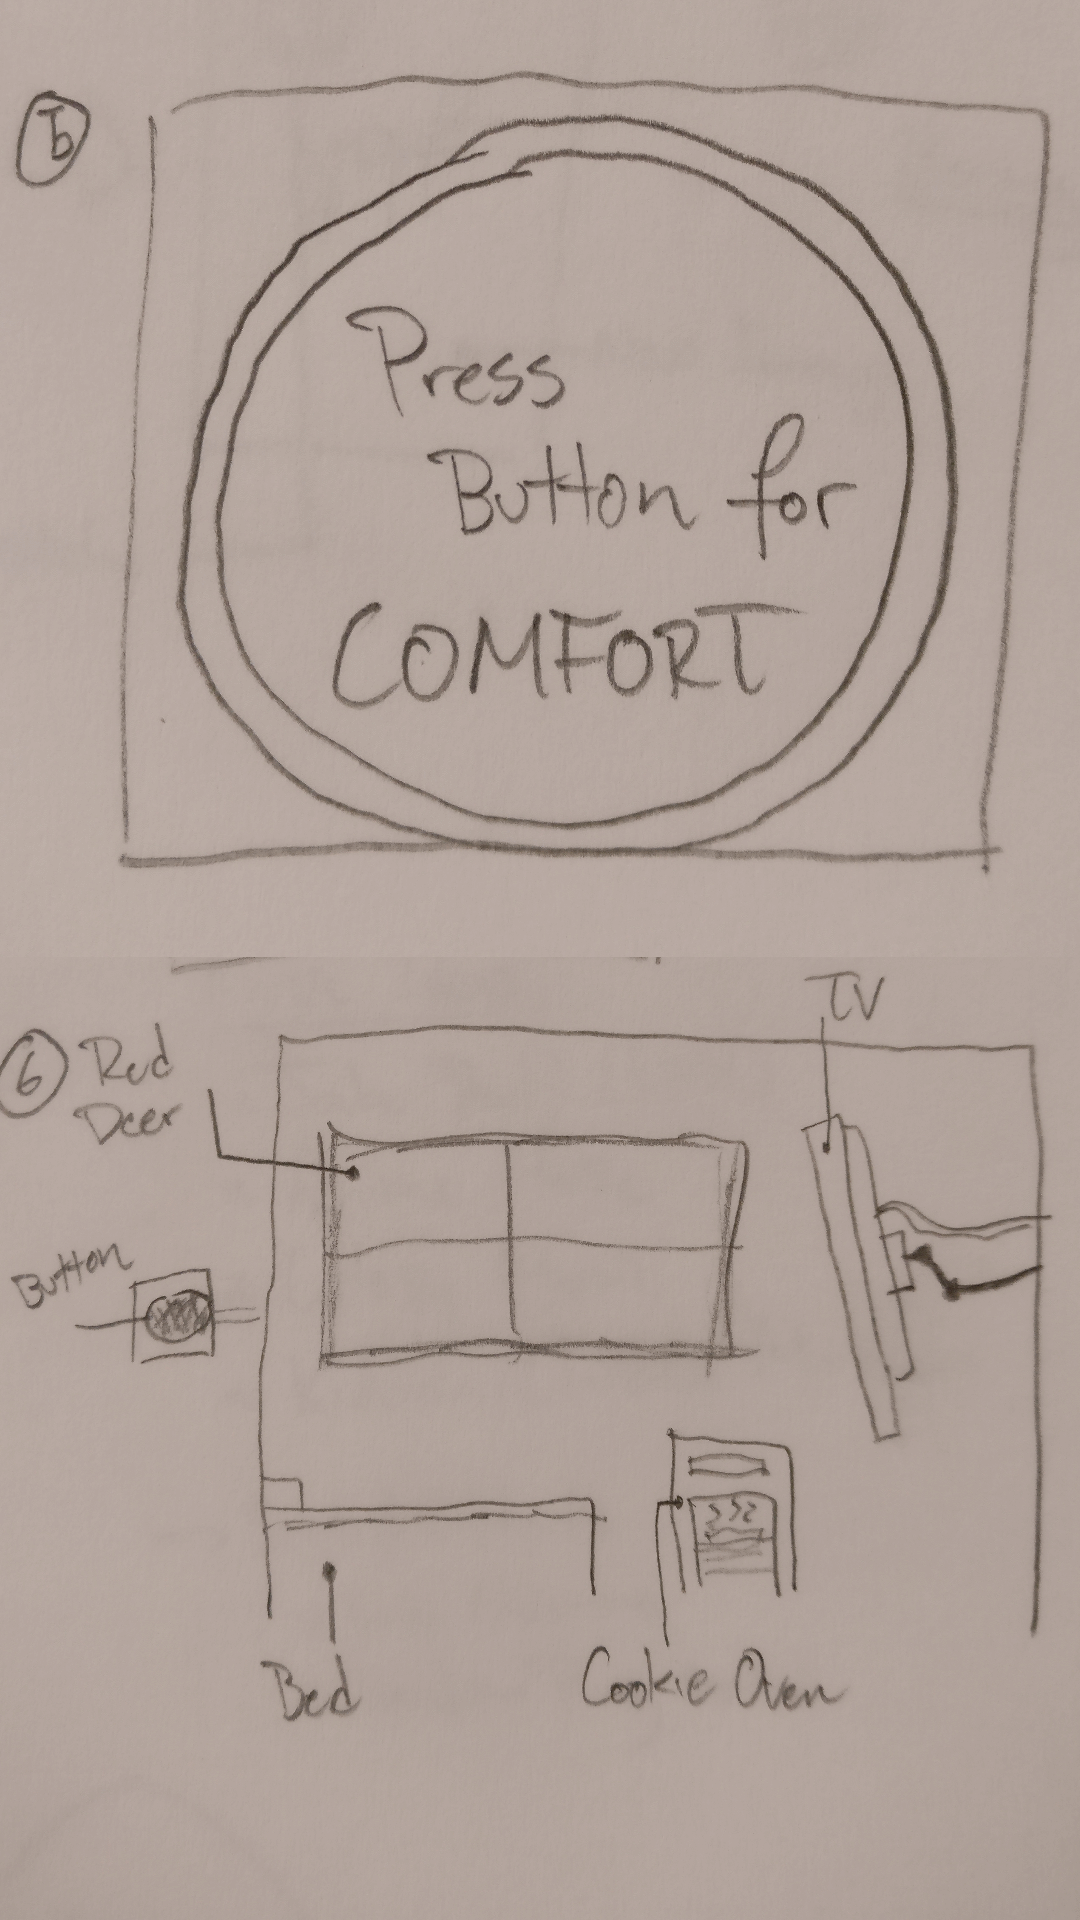 b
Press
Button for
COMFORT
TV
6 Red
Deer
Button
Bed
Cookie Oven